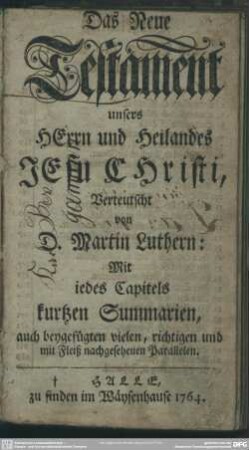 Das Neue
Testament
unsers
HErrn und Heilandes
JESU CHristi,
Verteutscht
von
D. Martin Luthern:
Mit
iedes Capitels
kurtzen Summarien,
auch beygefügten vielen, richtigen und
mit Fleiß nachgesehenen Parallelen.
HALLE,
zu finden im Wäysenhause 1764.